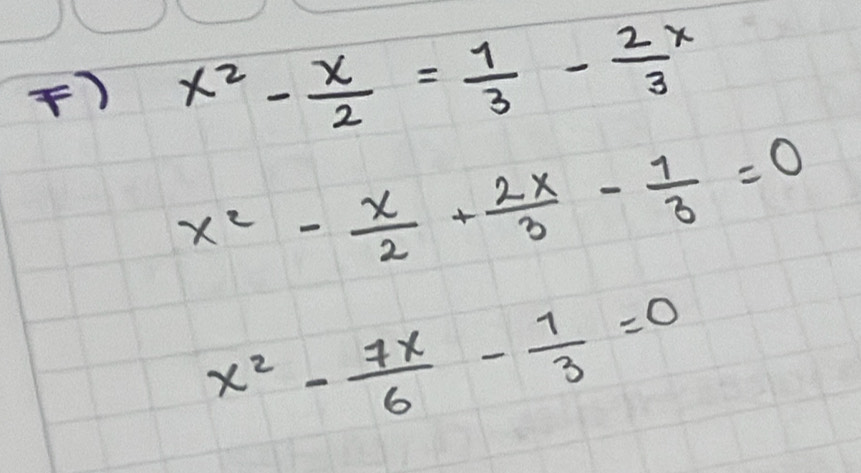 F) x² - x/2 = 1/3 - 2/3 x
x² - x/2 + 2x/3 - 1/3 = 0
x² - 7x/6 - 1/3 = 0